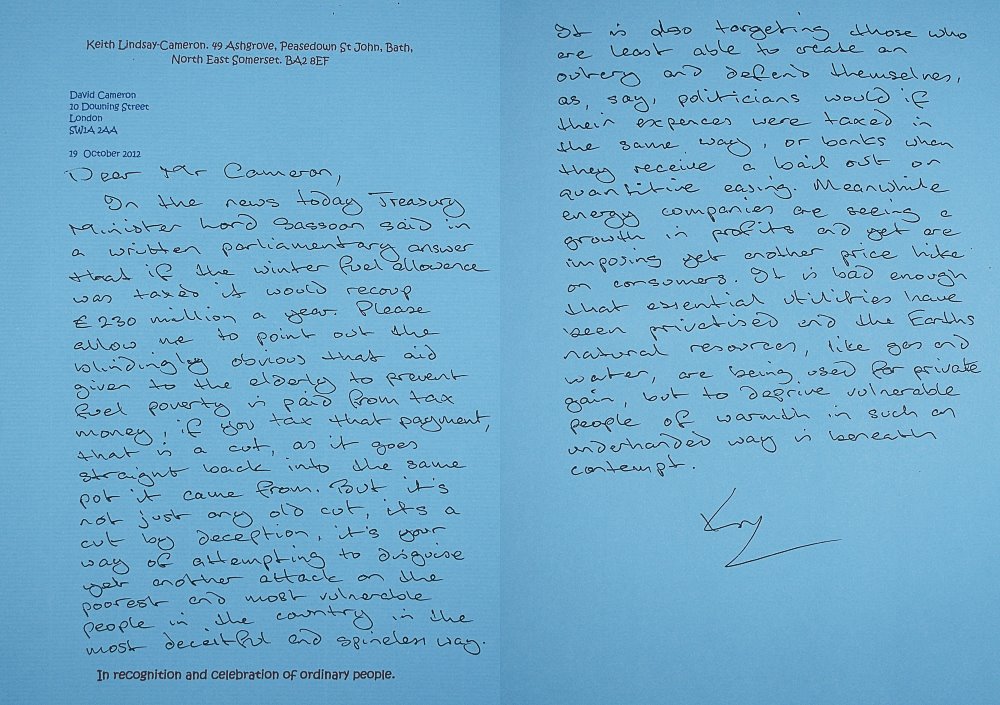 Keith Lindsay-Cameron. 49 Ashgrove, Peasedown St John, Bath,
North East Somerset. BA2 8EF
David Cameron
10 Downing Street
London
SW1A 2AA
19 October 2012
Dear Mr Cameron,
In the news today Treasury
Minister Lord Sassoon said in
a written parliamentary answer
that if the winter fuel allowence
was taxed it would recoup
£230 million a year. Please
allow me to point out the
blindingly obvious that aid
given to the elderly to prevent
fuel poverty is paid from tax
money, if you tax that payment,
that is a cut, as it goes
straight back into the same
pot it came from. But it's
not just any old cut, its a
cut by deception, it's your
way of attempting to disguise
yet another attack on the
poorest and most vulnerable
people in the country in the
most deceitful and spineless way.
In recognition and celebration of ordinary people.
It is also targeting those who
are least able to create an
outcry and defend themselves,
as, say, politicians would if
their expences were taxed in
the same way, or banks when
they receive a bail out or
quantitive easing. Meanwhile
energy companies are seeing a
growth in profits and yet are
imposing yet another price hike
on consumers. It is bad enough
that essential utilities have
been privatised and the Earths
natural resources, like gas and
water, are being used for private
gain, but to deprive vulnerable
people of warmth in such an
underhanded way is beneath
contempt.